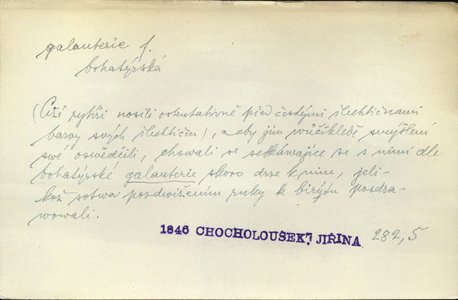 galanterie f.
bohatýrská
(Cizí rytíři nosili ostentativně před českými šlechtičnami
barvy svých šlechtičen), a aby jim zřejmě smýšlení
své osvědčili, chovali se setkávajíce se s nimi dle
bohatýrské galanterie skoro drze k nim, jeli-
kož sotva pozdvižením ruky k birýtu pozdra-
vovali.
1846 CHOCHOLOUŠEK, JIŘINA 282,5